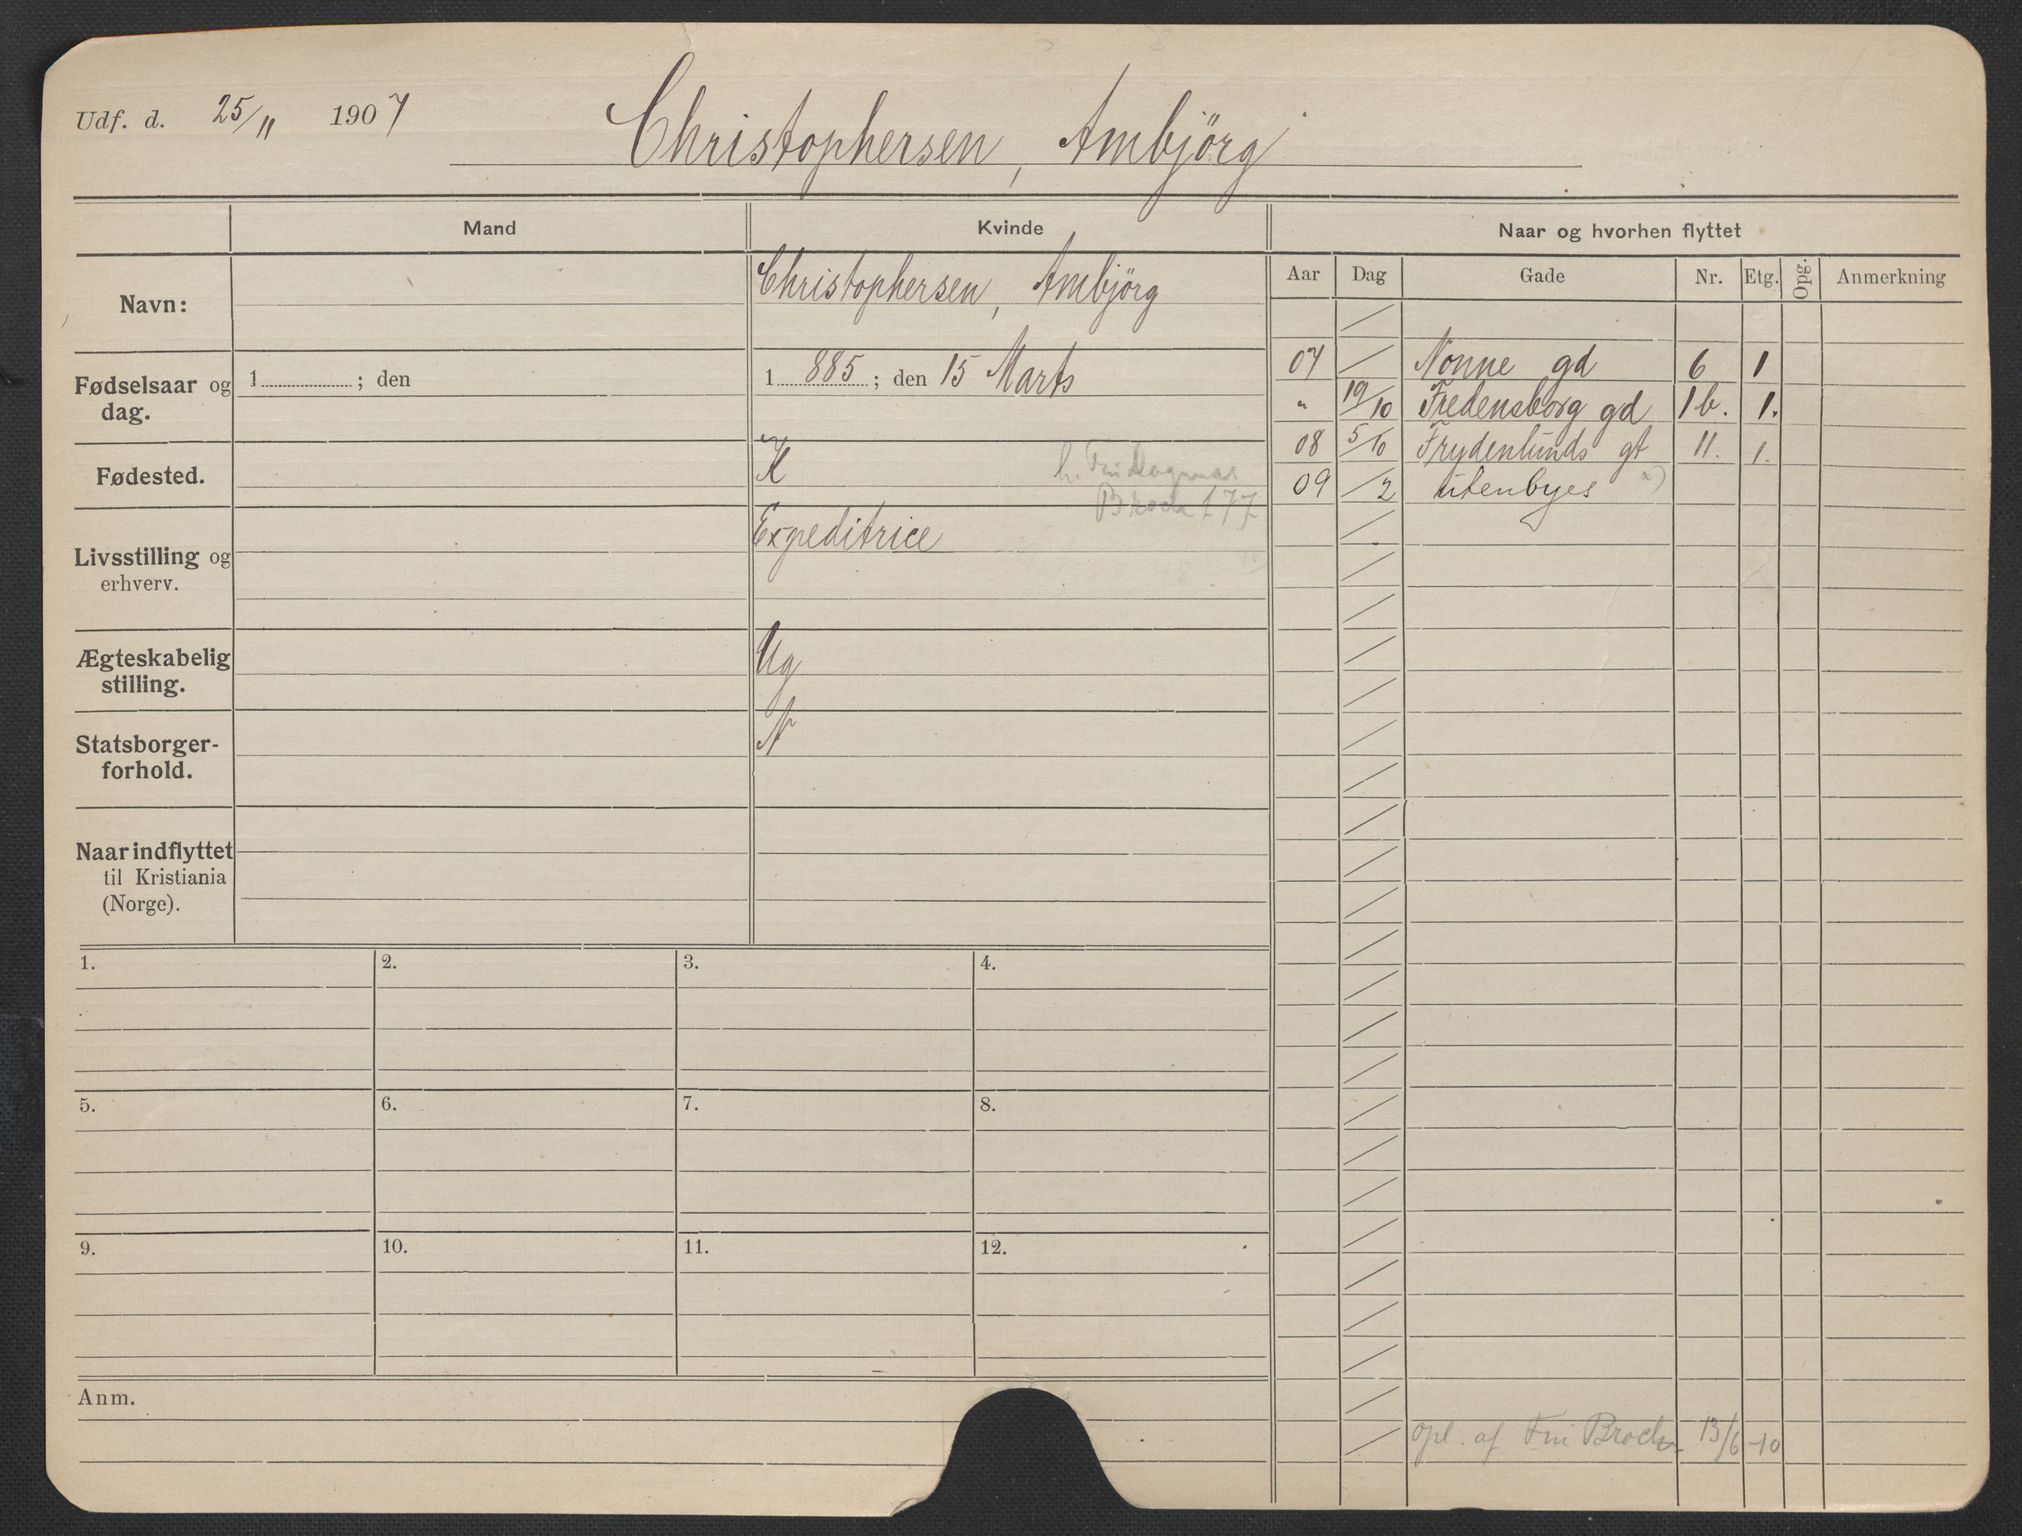 Udf. d. 25/11 1907 Christophersen, Ambjörg
Mand Kvinde Naar og hvorhen flyttet
Aar Dag Gade Nr. Etg. Opg. Anmerkning
Navn: Christophersen, Ambjörg
Fødselsaar og dag. 1 ; den 1 885 ; den 15 Marts
Fødested. K
h. Frk Dagmar
Broch f 77
Livsstilling og erhverv. Expeditrice
Ægteskabelig stilling. Ug
Statsborgerforhold. N
Naar indflyttet
til Kristiania
(Norge).
07 / Nonne gd 6 1
" 19/10 Fredensborg gd 1 b. 1.
08 5/10 Frydenlunds gt 11. 1.
09 /2 utenbyes x)
1. 2. 3. 4.
5. 6. 7. 8.
9. 10. 11. 12.
Anm.
opl. af Broch 13/6-10